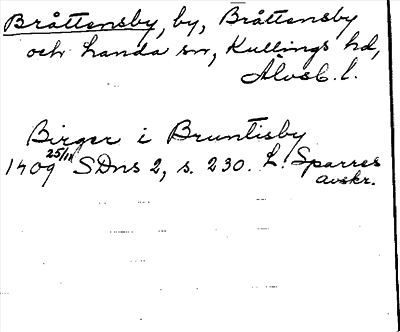 Bråttensby, by, Bråttensby
och Landa snr, Kullings hd,
Älvsb. l.
Birger i Bruntisby
1409 25/11 SDns 2, s. 230. L. Sparres
avskr.